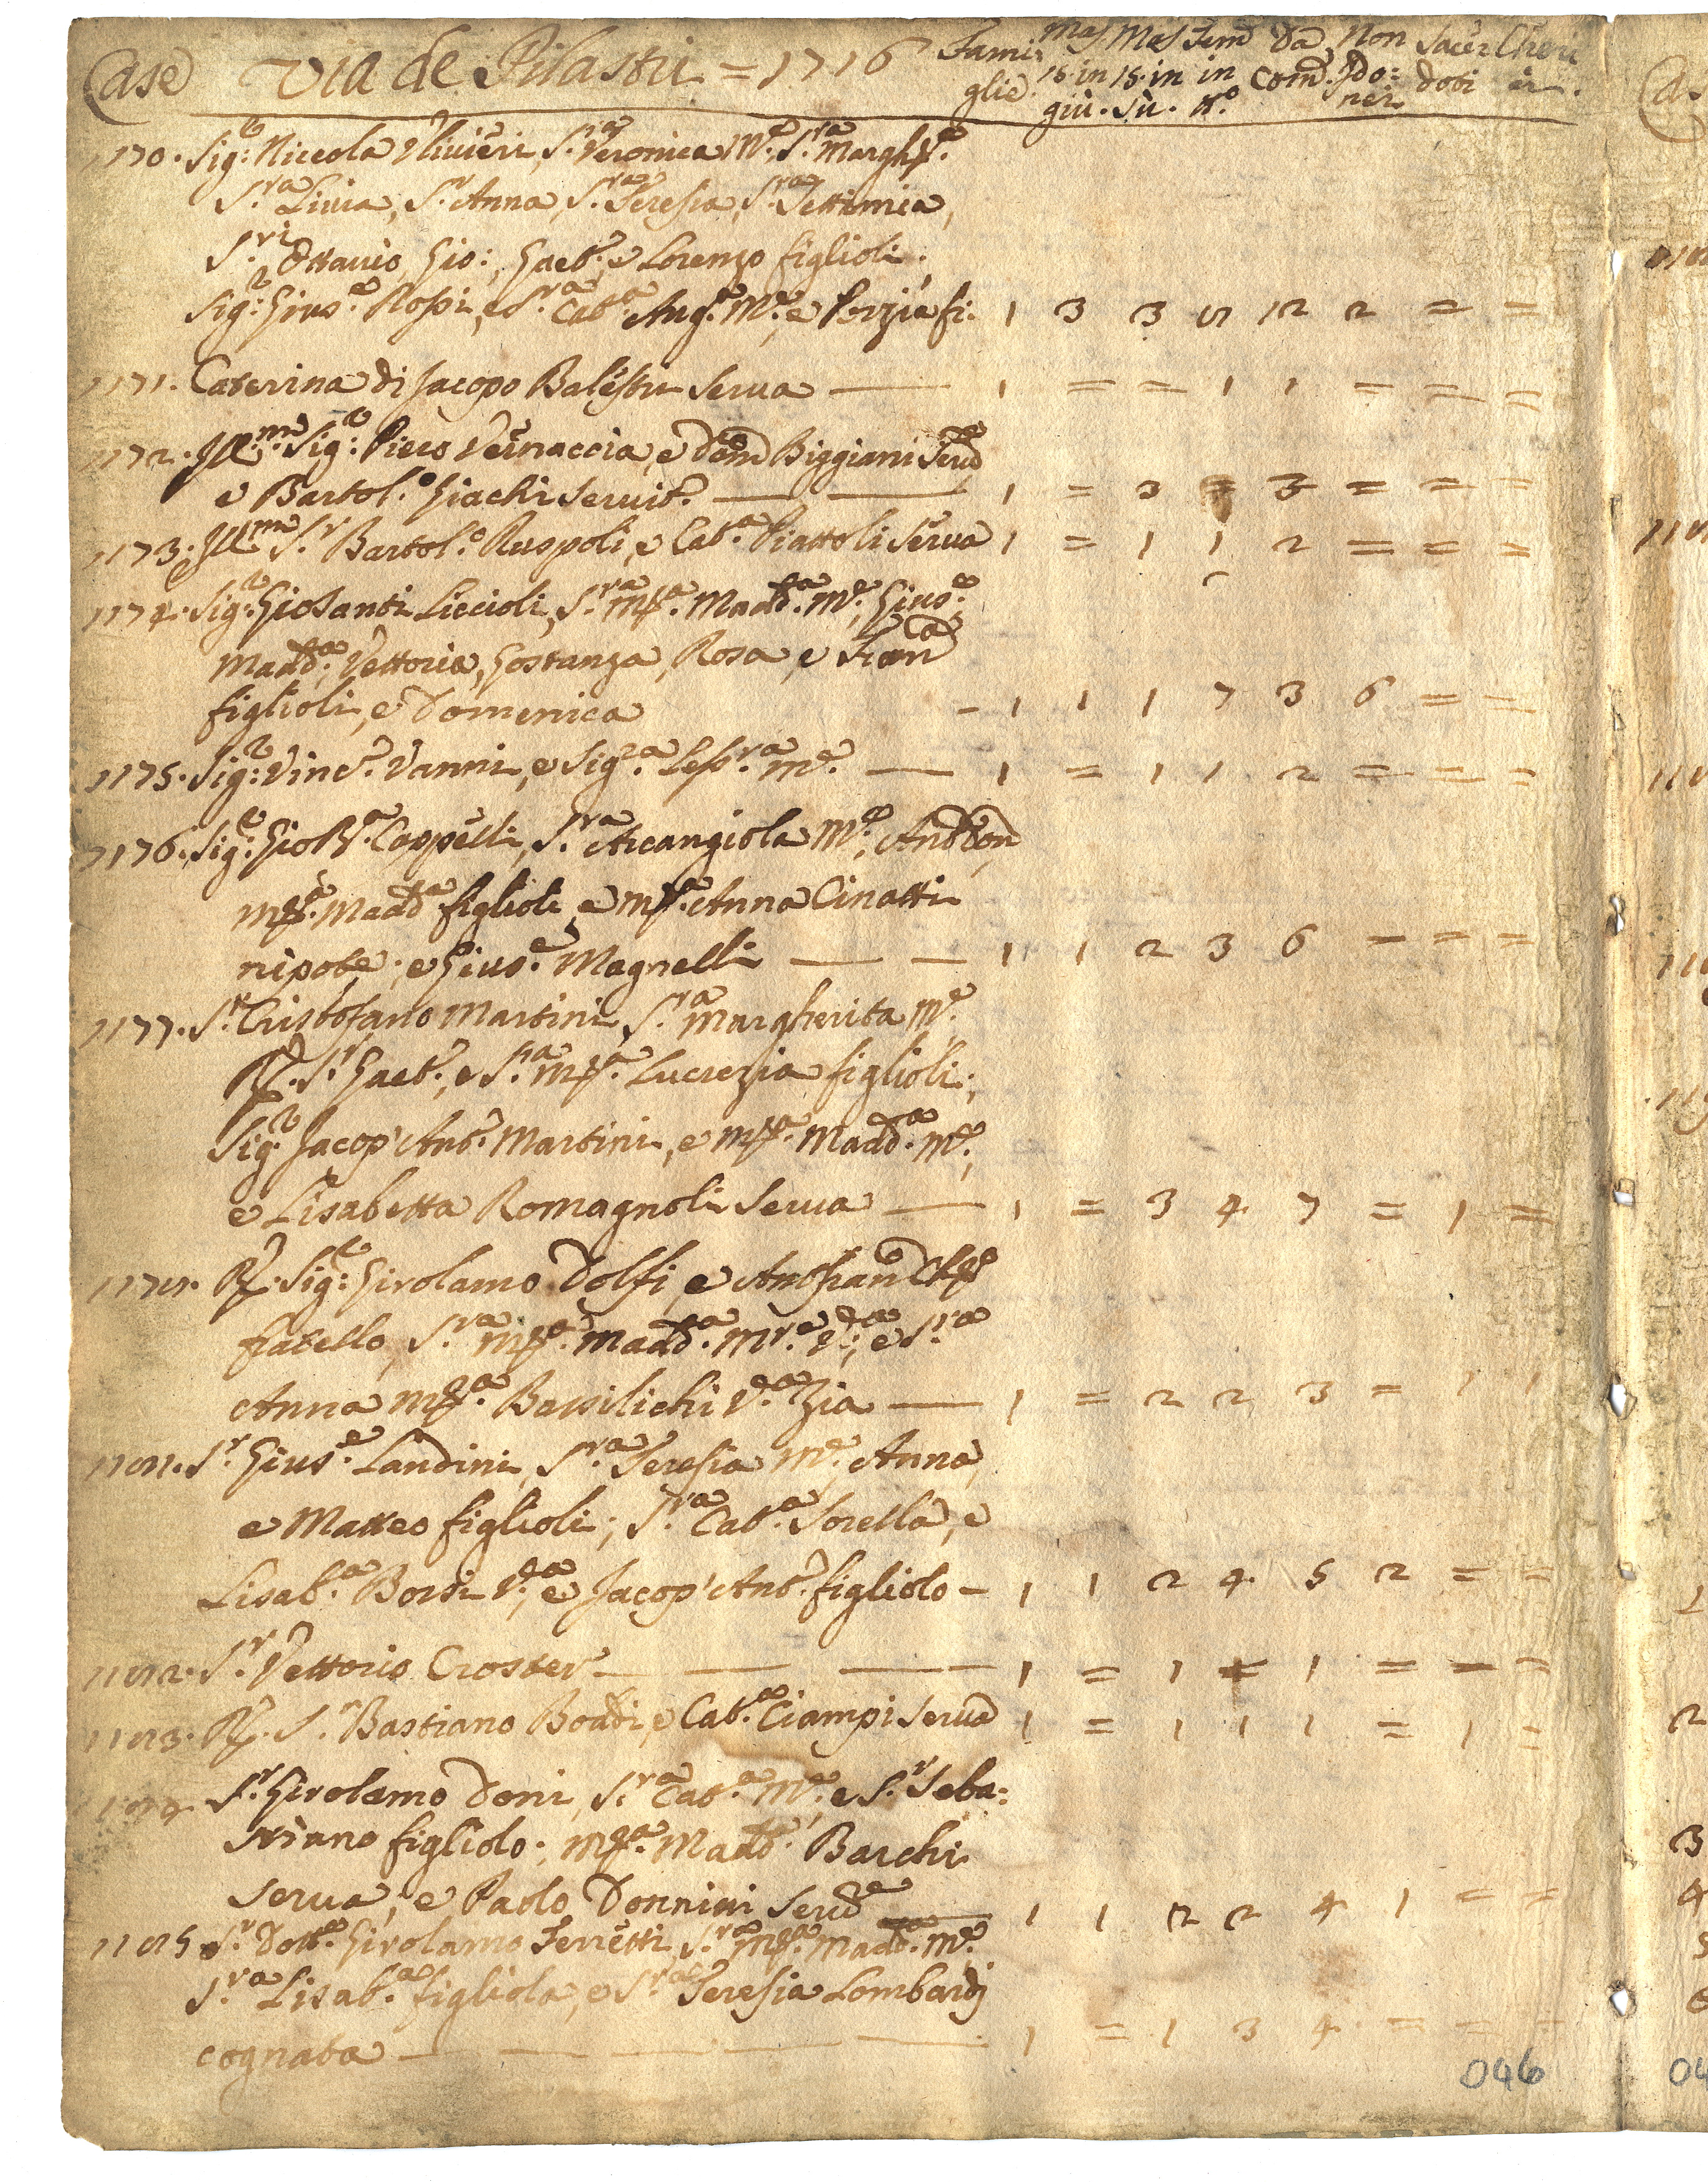 Case Via de Pilastri = 1716 Fami Mas Mas Fem Da Non Sacer Cheri
glie 15. in 15. in in Com. Ido: doti ci.
giù. sù. n.o nei
1170. Sig.r Niccola Ulivieri, S.ra Veronica M.e S.ra Margh.ta
S.ra Livia, S.ra Anna, S.ra Teresia, S.ra Settimia,
S.ri Ottavio, Gio:, Gaet.o, e Lorenzo figlioli.
Sig.r Gius.e Rossi, e S.ra Cat.a Ang.a M.e, e Porzia fi. 1 3 3 8 12 2 = =
1171. Caterina di Jacopo Balestri Serva — 1 = = 1 1 = = =
1172. Ill.mo Sig.r Piero Vernaccia, e Dom.co Biggiani Ser.e
e Bartol.o Giachi Servit.e — 1 = 3 = 3 = = =
1173. Ill.mo S.r Bartol.o Ruspoli, e Cat.a Piattoli Serva 1 = 1 1 2 = = =
1174. Sig.r Gio Santi Liccioli, S.ra M.a Madd.a M.e, Gius.e
Madd.a, Vettoria, Gostanza, Rosa, e Fran.ca
figlioli, e Domenica — 1 1 1 7 3 6 = =
1175. Sig.r Vinc.o Vanni, e Sig.ra Less.ra M.e — 1 = 1 1 2 = = =
1176. Sig.r Gio B.a Cappelli, S.ra Arcangiola M.e, Ant.o
M.a Madd.a figlioli, e M.a Anna Cinatti
nipote; e Gius.e Magnelli — — 1 1 2 3 6 = = =
1177. S.r Cristofano Martini, S.ra Margherita M.e
R. S.r Gaet.o, e S.ra M.a Lucrezia figlioli;
Sig.r Jacop' Ant.o Martini, e M.a Madd.a M.e,
e Lisabetta Romagnoli Serva — 1 = 3 4 7 = 1 =
1178. R. Sig.r Girolamo Dolfi, e Ant. Fran.co
fratello, S.ra M.a Madd.a M.re V.a; e S.ra
Anna M.a Bassilichi V.a Zia — 1 = 2 2 3 = 1 1
1181. S.r Gius.e Landini, S.ra Teresia M.e, Anna,
e Matteo figlioli; S.ra Cat.a Sorella, e
Lisab.a Borsi V.a, e Jacop' Ant.o figliolo — 1 1 2 4 5 2 = =
1182. S.r Vettorio Croster — — — 1 = 1 = 1 = = =
1183. R. S.r Bastiano Boddi, e Cat.a Ciampi Serva 1 = 1 1 1 = 1 =
1184. S.r Girolamo Doni, S.ra Cat.a M.e, e S.r Seba:
stiano figliolo; M.a Madd.a Barchi
Serva; e Paolo Donnini Ser.e — 1 1 2 2 4 1 = =
1185 S.r Dott.e Girolamo Ferretti, S.ra M.a Madd.a M.e
S.ra Lisab.a figliola, e S.ra Teresia Lombardi
cognata — — — — — 1 = 1 3 4 = = =
046